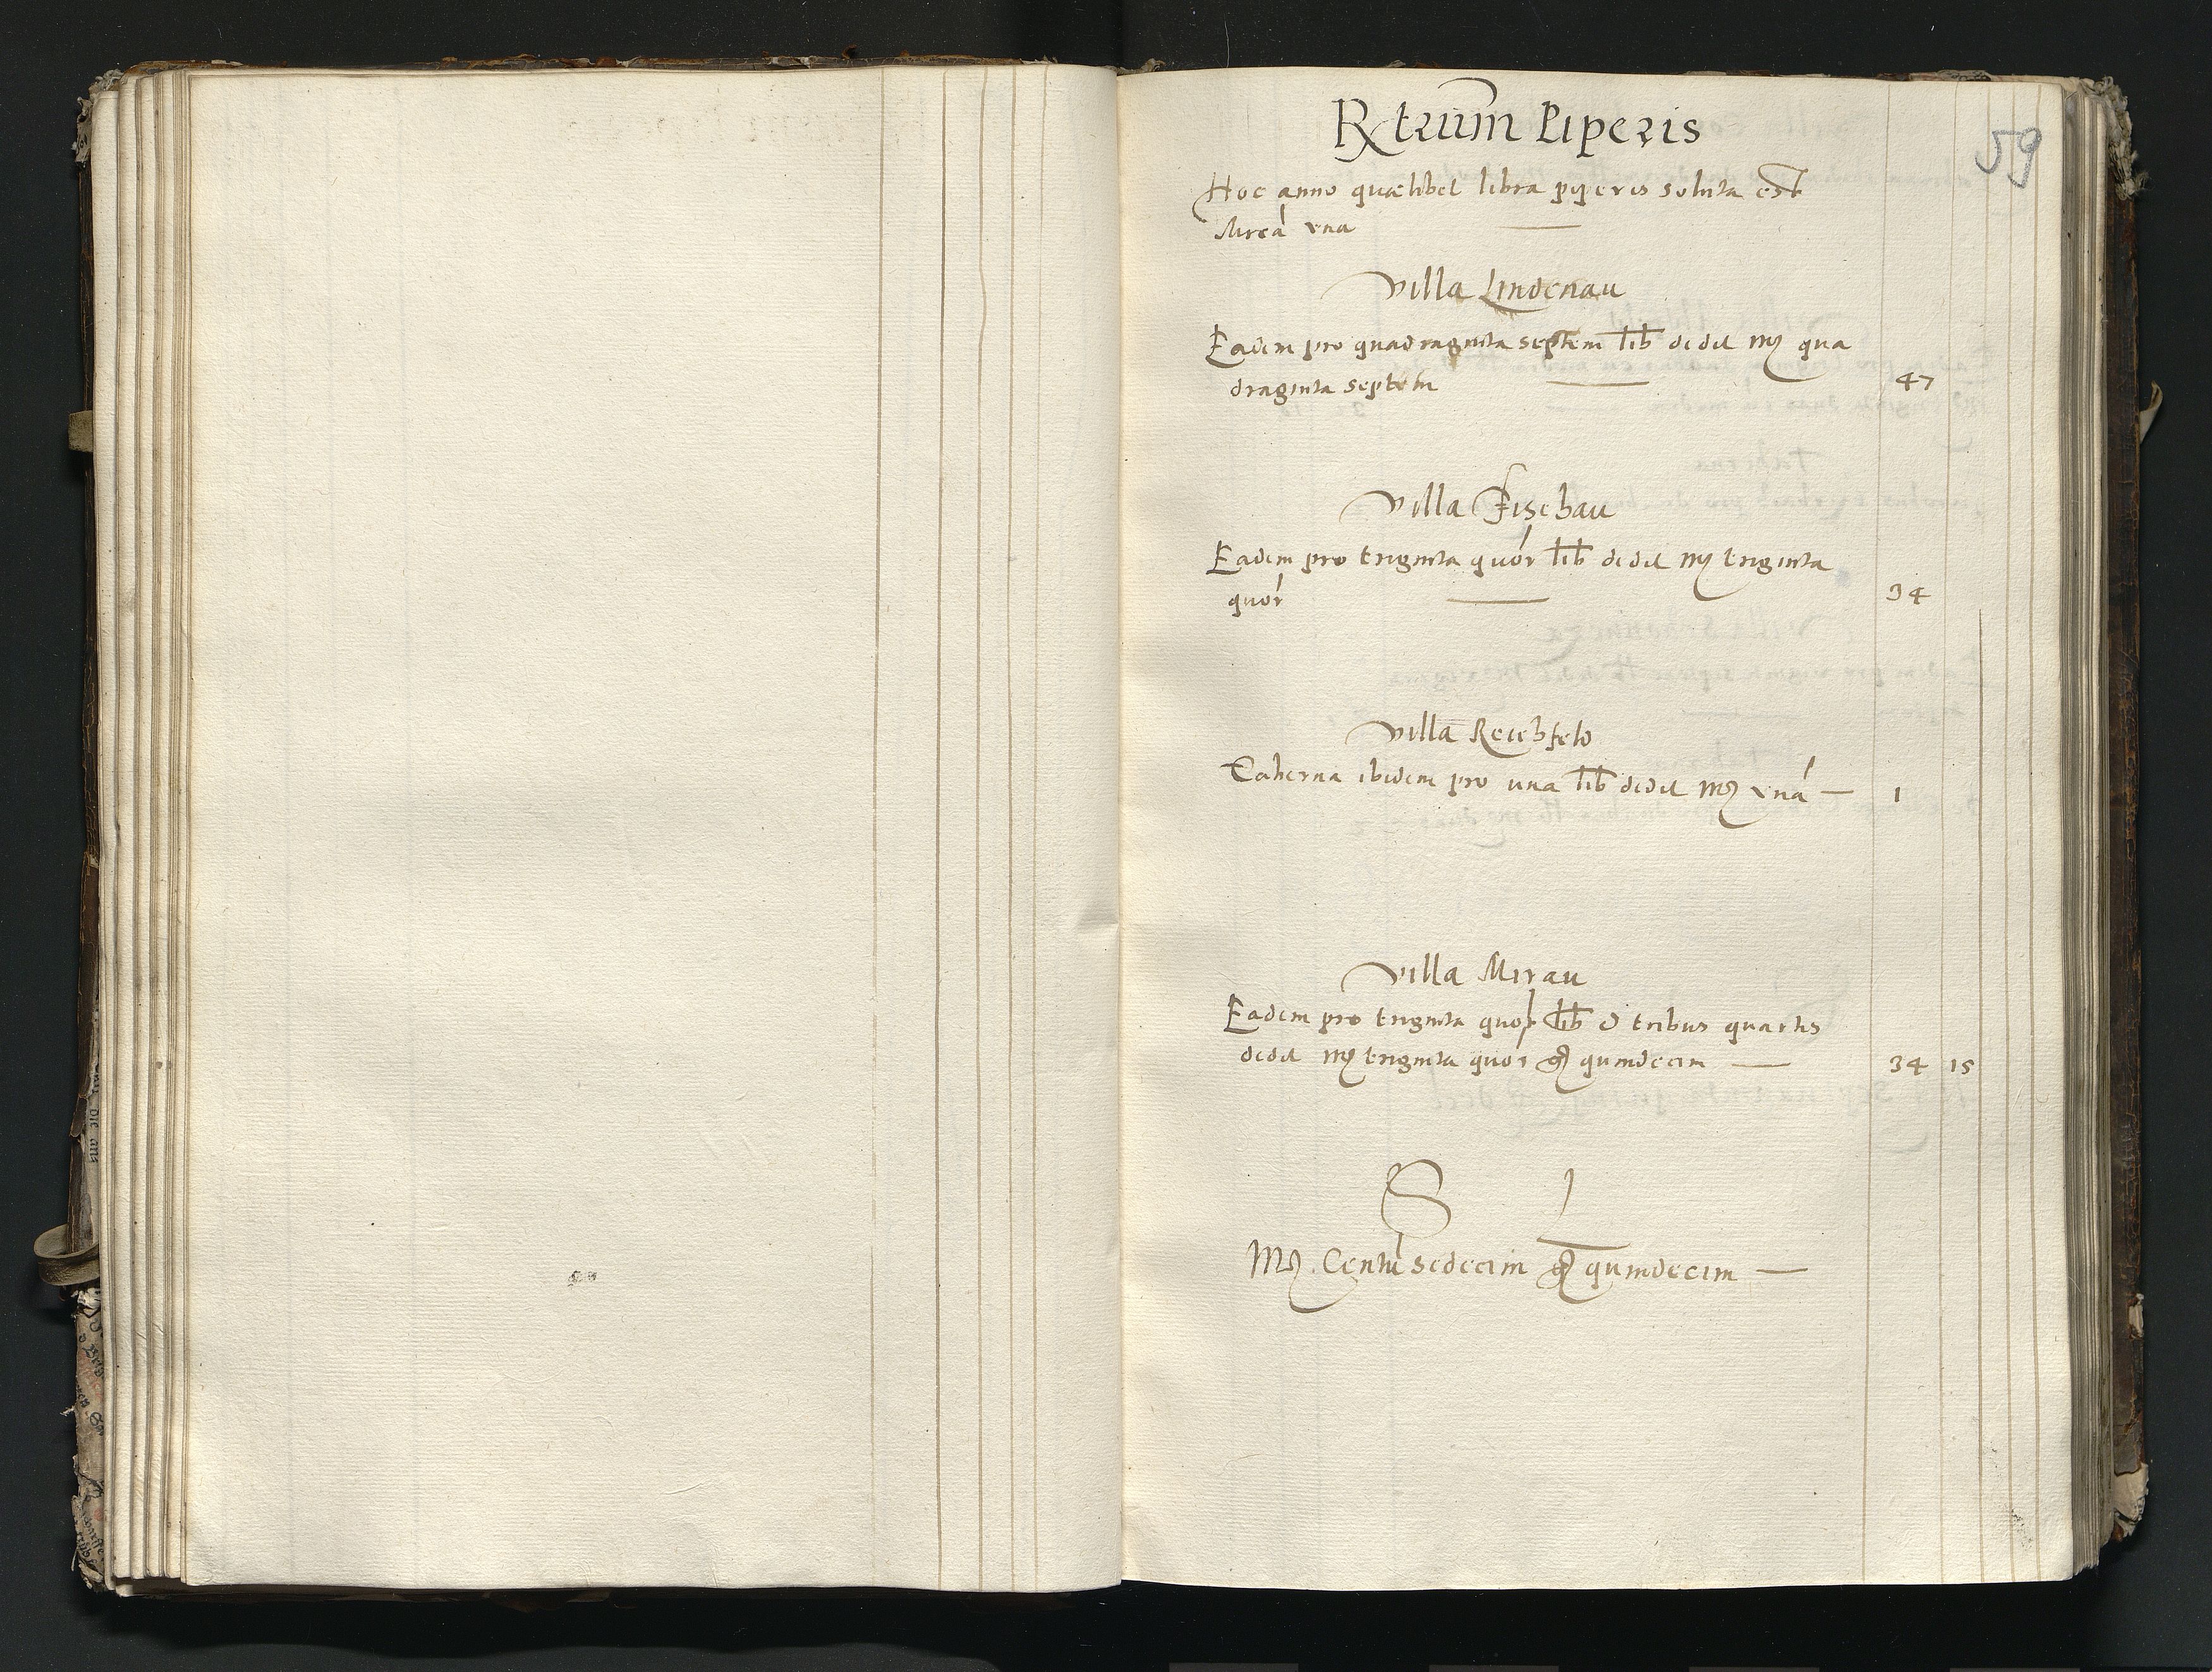 59
Rx truum Piperis
Hoc anno quælibet libra piperis soluta est
Mrcá vna
Villa Lindenau
Eadem pro quadraginta septem lib dedit mr qua
draginta septem 47
Villa Fischau
Eadem pro triginta quór lib dedit mr triginta
quór 34
Villa Reichfeld
Taberna ibidem pro una lib dedit mr vná 1
Villa Mirau
Eadem pro triginta quor lib & tribus quartis
dedit mr triginta quor gr quindecim 34 15
S L
Mr. Centu sedecim gr quindecim